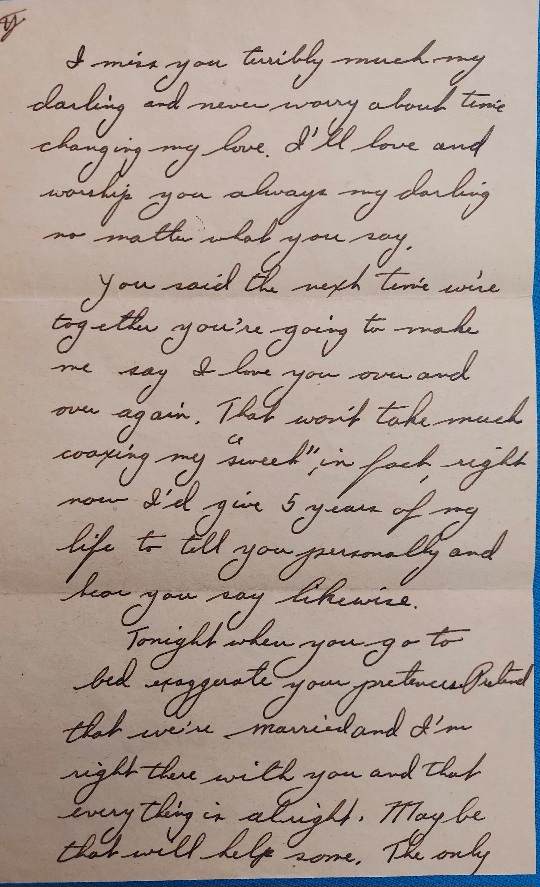 I miss you terribly much my
darling and never worry about time
changing my love. I'll love and
worship you always my darling
no matter what you say.
You said the next time we're
together you're going to make
me say I love you over and
over again. That won't take much
coaxing my "sweet", in fact, right
now I'd give 5 years of my
life to tell you personally and
hear you say likewise.
Tonight when you go to
bed exaggerate your pretences. Pretend
that we're married and I'm
right there with you and that
everything is alright. Maybe
that will help some. The only